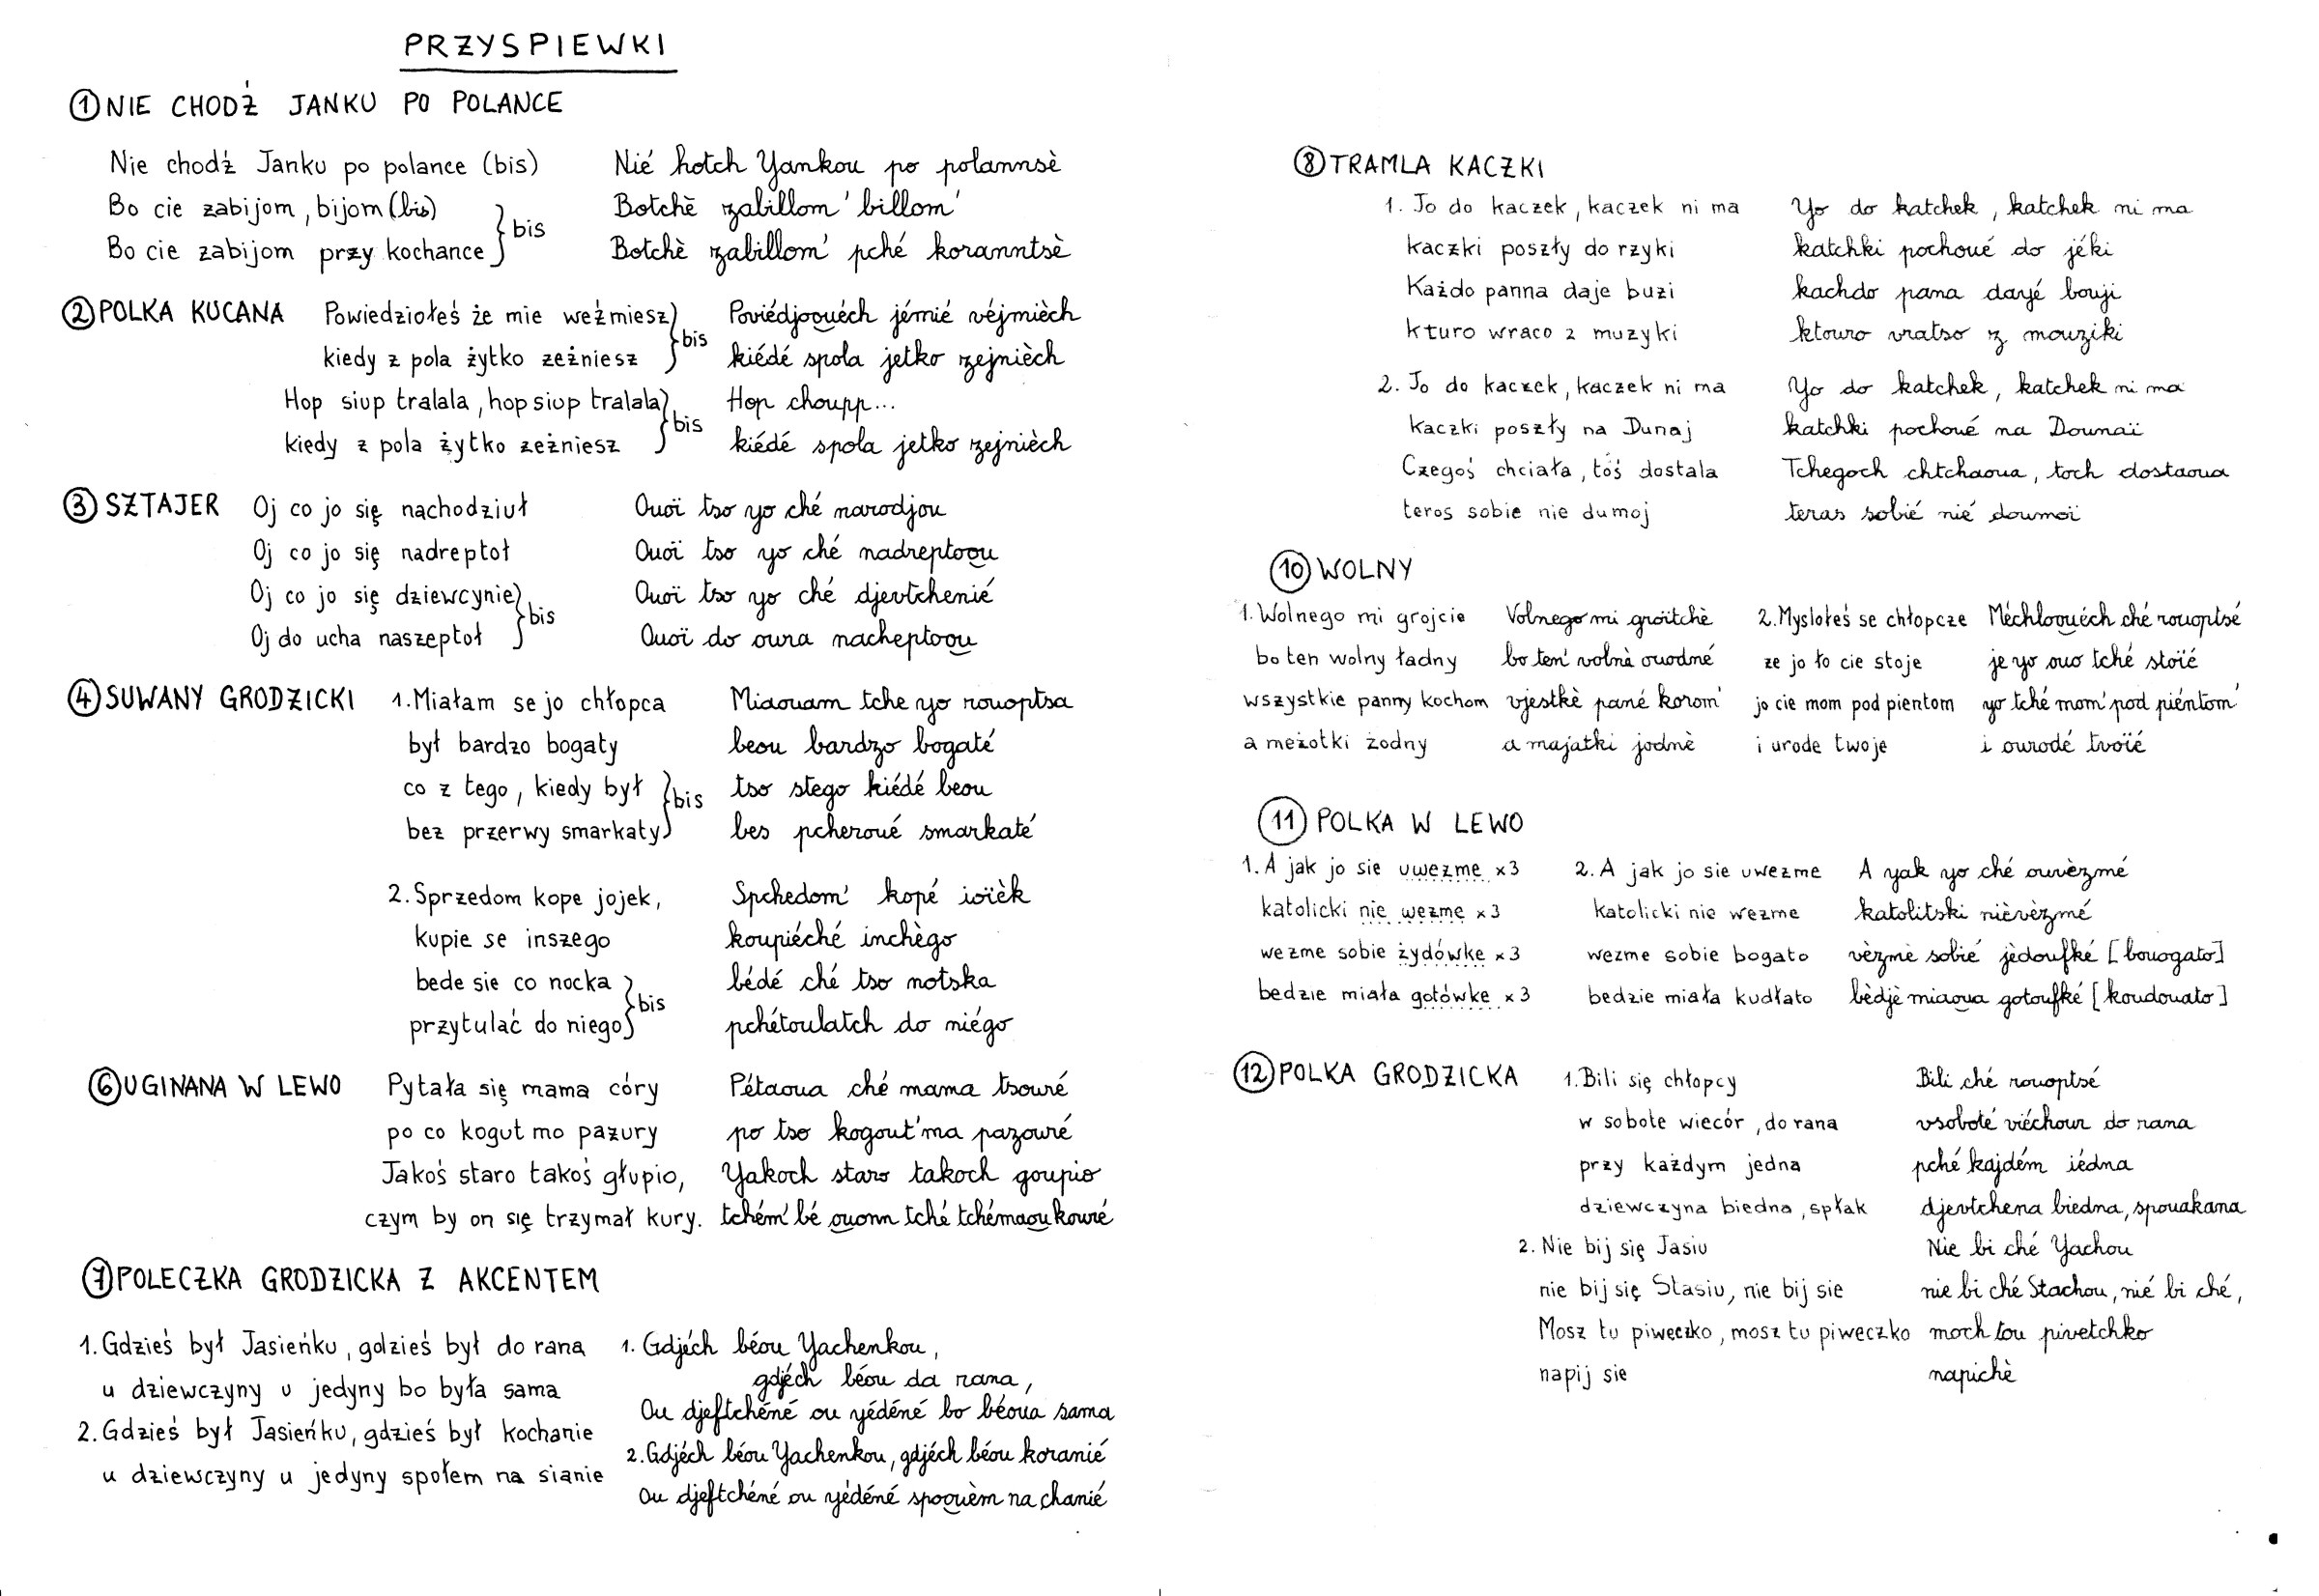 PRZYSPIEWKI
① NIE CHODŹ JANKU PO POLANCE
Nie chodź Janku po polance (bis) Nié hotch Yankou po polannsè
Bo cie zabijom, bijom (bis) Botchè zabillom' billom'
Bo cie zabijom przy kochance } bis Botchè zabillom' pché koranntsè
② POLKA KUCANA Powiedziołeś że mie weźmiesz Poviédjoouéch jémié véjmièch
kiedy z pola żytko zeżniesz } bis kiédé spola jetko zejnièch
Hop siup tralala, hop siup tralala Hop choupp...
kiedy z pola żytko zeżniesz } bis kiédé spola jetko zejnièch
③ SZTAJER Oj co jo się nachodziuł Ouoï tso yo ché narodjou
Oj co jo się nadreptoł Ouoï tso yo ché nadreptoou
Oj co jo się dziewcynie Ouoï tso yo ché djevtchenié
Oj do ucha naszeptoł } bis Ouoï do oura nacheptoou
④ SUWANY GRODZICKI 1. Miałam se jo chłopca Miaouam tche yo rouoptsa
był bardzo bogaty beou bardzo bogaté
co z tego, kiedy był tso stego kiédé beou
bez przerwy smarkaty } bis bes pcheroué smarkaté
2. Sprzedom kope jojek, Spchedom' kopé ioïèk
kupie se inszego koupiéché inchègo
bede sie co nocka bédé ché tso notska
przytulać do niego } bis pchétoulatch do niégo
⑥ UGINANA W LEWO Pytała się mama córy Pétaoua ché mama tsouré
po co kogut mo pazury po tso kogout'ma pazouré
Jakoś staro takoś głupio, Yakoch staro takoch goupio
czym by on się trzymał kury. tchém' bé ouonn tché tchémaou kouré
⑦ POLECZKA GRODZICKA Z AKCENTEM
1. Gdzieś był Jasieńku, gdzieś był do rana 1. Gdjéch béou Yachenkou,
gdjéch béou da rana,
u dziewczyny u jedyny bo była sama Ou djeftchéné ou yédéné bo béoua sama
2. Gdzieś był Jasieńku, gdzieś był kochanie 2. Gdjéch béou Yachenkou, gdjéch béou koranié
u dziewczyny u jedyny społem na sianie Ou djeftchéné ou yédéné spoouèm na chanié
⑧ TRAMLA KACZKI
1. Jo do kaczek, kaczek ni ma Yo do katchek, katchek ni ma
kaczki poszły do rzyki katchki pochoué do jéki
Każdo panna daje buzi kachdo pana dayé bouji
kturo wraco z muzyki ktouro vratso z mouziki
2. Jo do kaczek, kaczek ni ma Yo do katchek, katchek ni ma
kaczki poszły na Dunaj katchki pochoué na Dounaï
Czegoś chciała, toś dostala Tchegoch chtchaoua, toch dostaoua
teros sobie nie dumoj teras sobié nié doumoï
⑩ WOLNY
1. Wolnego mi grojcie Volnego mi groïtchè 2. Mysloteś se chłopcze Méchloouéch ché rouoptsé
bo ten wolny ładny bo ten' volnè ouodné ze jo ło cie stoje je yo ouo tché stoïé
wszystkie panny kochom vjestkè pané korom' jo cie mom pod pientom yo tché mom' pod piéntom'
a meżotki żodny a majatki jodnè i urode twoje i ourodé tvoïé
⑪ POLKA W LEWO
1. A jak jo sie uwezme x3 2. A jak jo sie uwezme A yak yo ché ouvèzmé
katolicki nie wezme x3 katolicki nie wezme katolitski nièvèzmé
wezme sobie żydówke x3 wezme sobie bogato vèzmè sobié jèdoufké [bouogato]
bedzie miała gotówke x3 bedzie miała kudłato bèdjè miaoua gotoufké [koudouato]
⑫ POLKA GRODZICKA 1. Bili się chłopcy Bili ché rouoptsé
w sobote wiecór, do rana vsoboté viéchour do rana
przy każdym jedna pché kajdém iédna
dziewczyna biedna, spłak djevtchena biedna, spouakana
2. Nie bij się Jasiu Nie bi ché Yachou
nie bij się Stasiu, nie bij sie nie bi ché Stachou, nié bi ché,
Mosz tu piweczko, mosz tu piweczko moch tou pivetchko
napij sie napichè